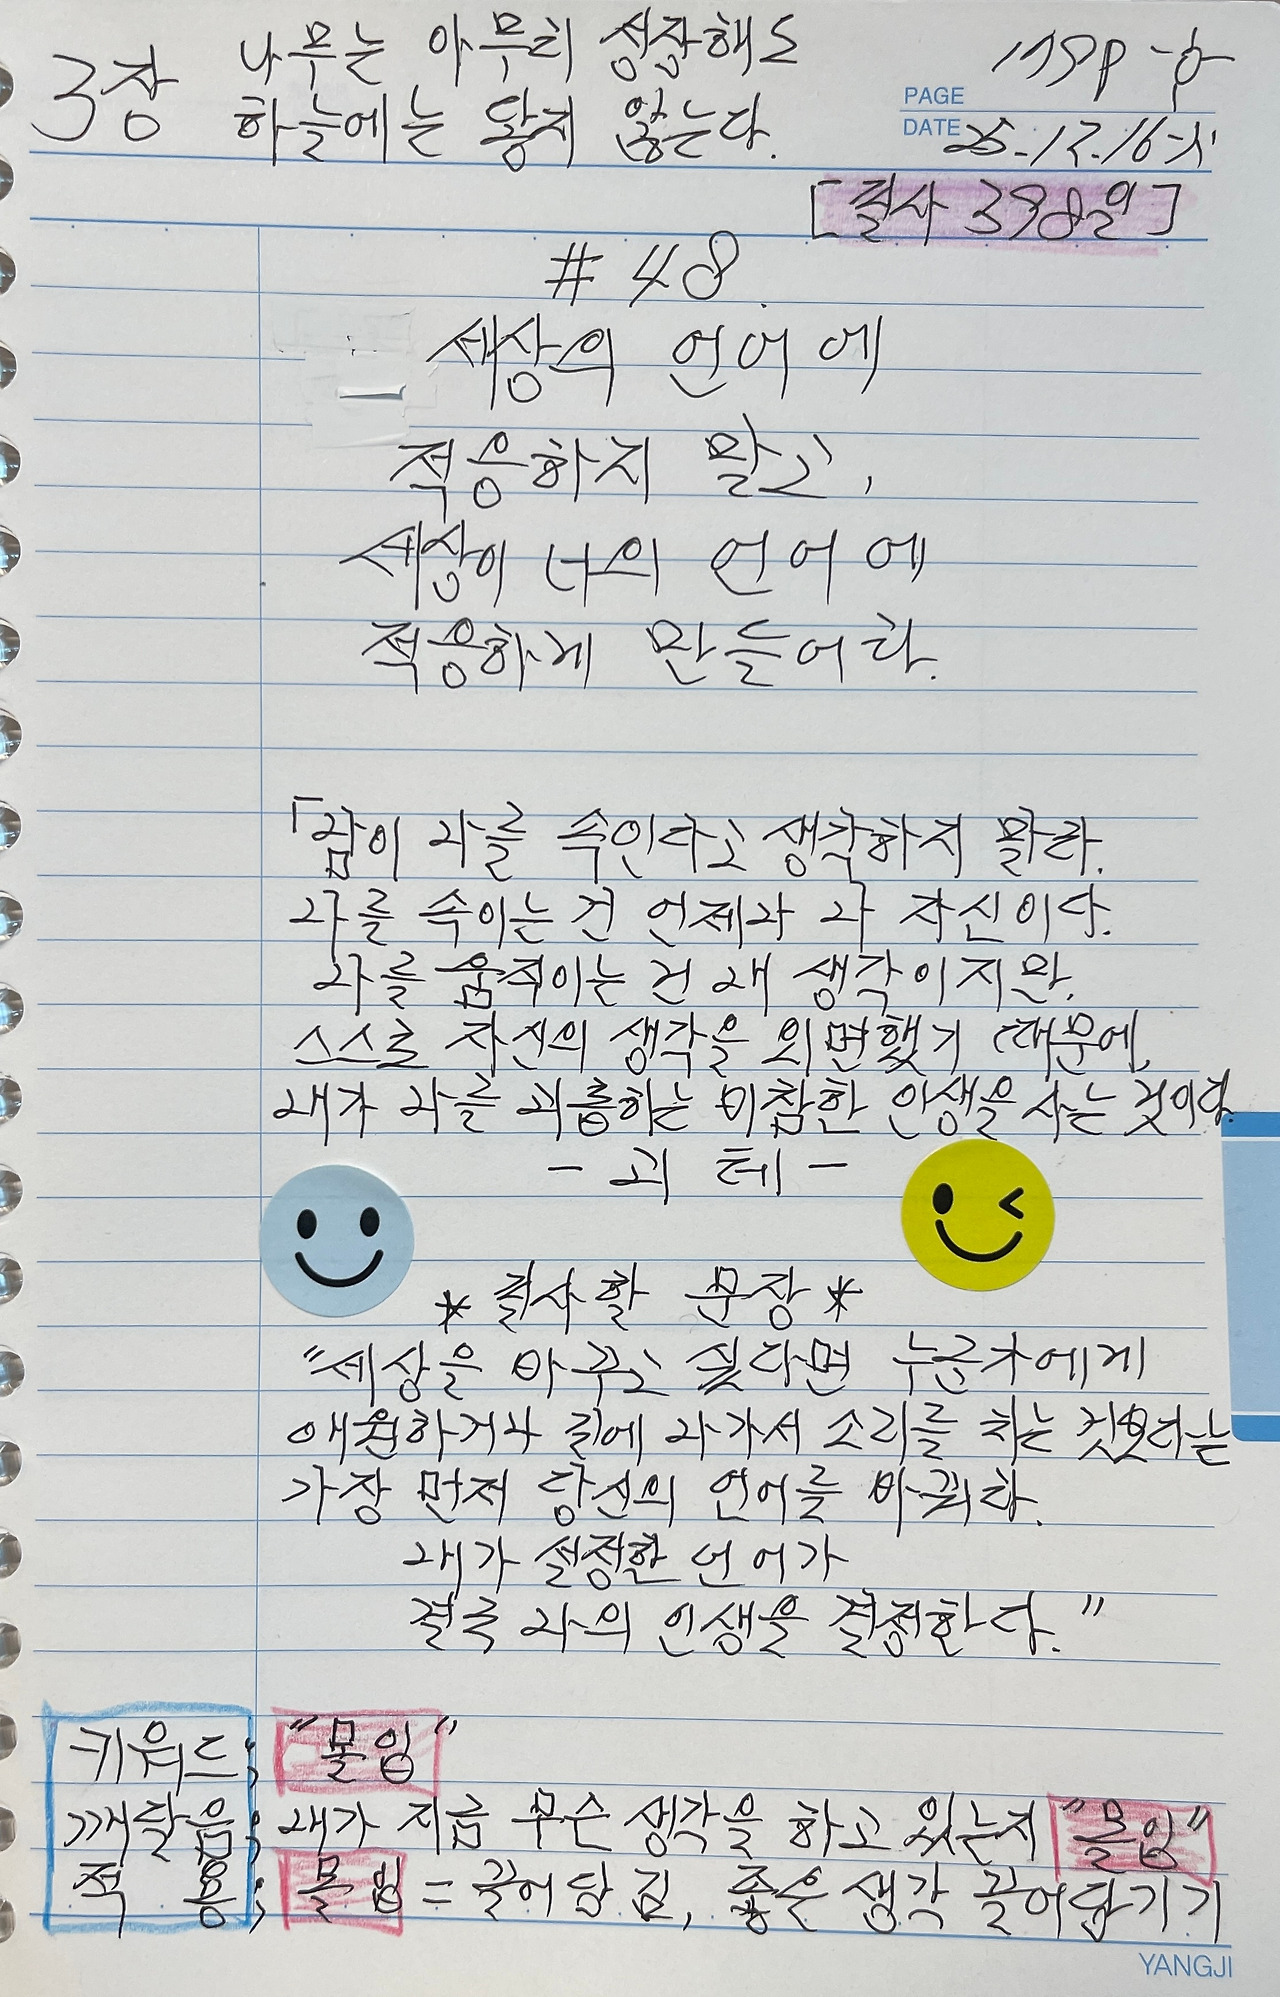 3장 나무는 아무리 성장해도
하늘에는 닿지 않는다.
PAGE
DATE 25.12.16-화
[필사 398일]
#48.
세상의 언어에
적응하지 말고,
세상이 너의 언어에
적응하게 만들어라.
「남이 나를 속인다고 생각하지 말라.
나를 속이는 건 언제나 나 자신이다.
나를 움직이는 건 내 생각이지만,
스스로 자신의 생각을 외면했기 때문에,
내가 나를 괴롭히는 비참한 인생을 사는 것이다.
- 괴테 -
* 필사할 문장 *
"세상을 바꾸고 싶다면 누군가에게
애원하거나 길에 나가서 소리를 치는 것보다는
가장 먼저 당신의 언어를 바꿔라.
내가 설정한 언어가
결국 나의 인생을 결정한다."
키워드; "몰입"
깨달음; 내가 지금 무슨 생각을 하고 있는지 "몰입"
적용; 몰입 = 끌어당김, 좋은 생각 끌어당기기
YANGJI